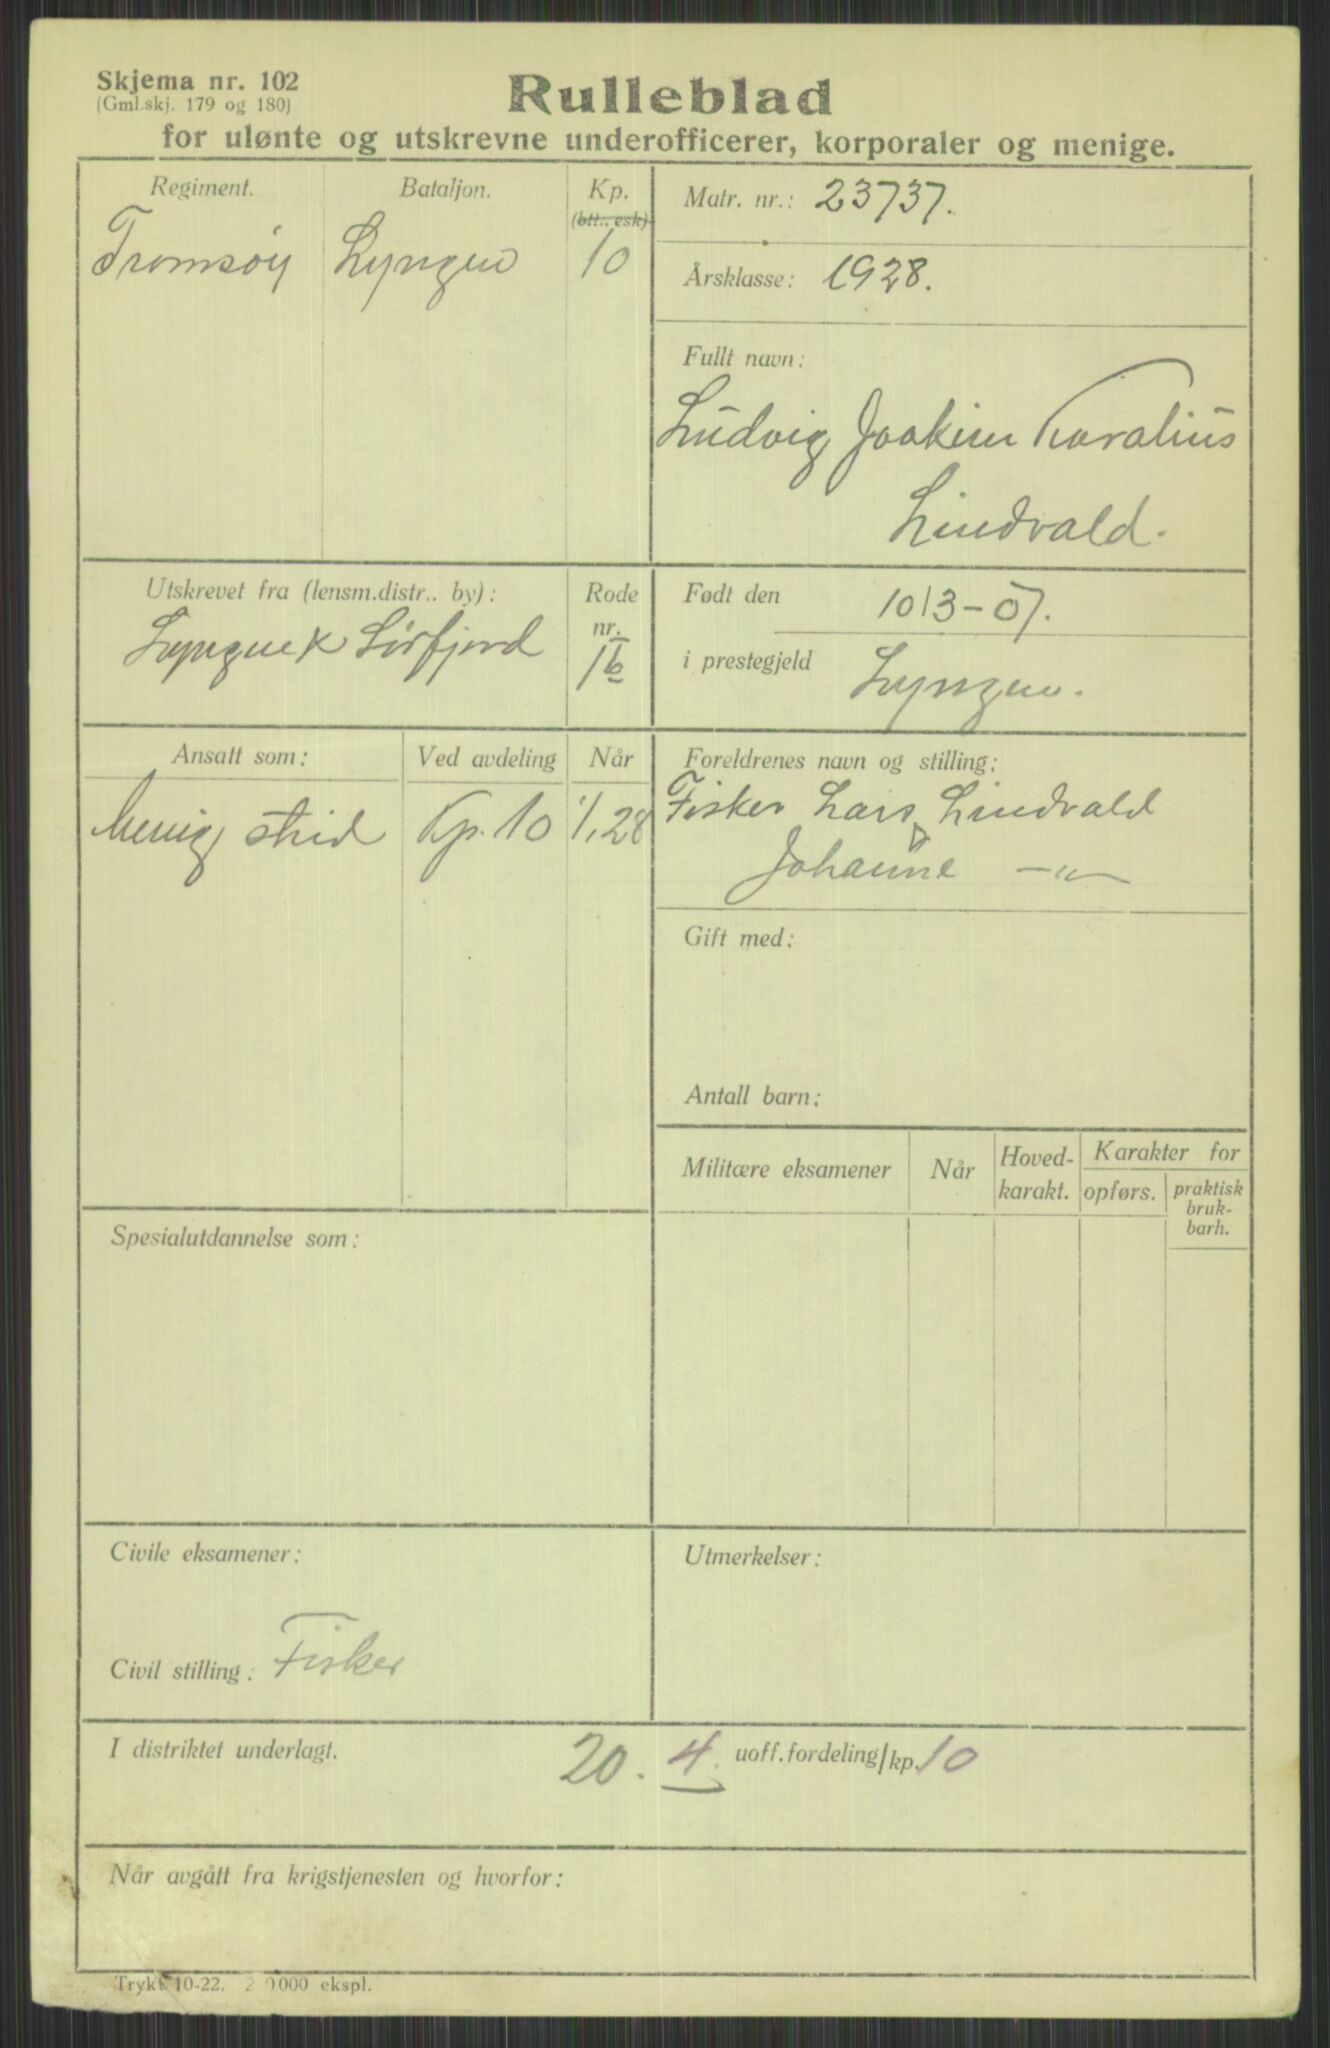 Skjema nr. 102
(Gml.skj. 179 og 180)
Rulleblad
for ulønte og utskrevne underofficerer, korporaler og menige.
Regiment.
Bataljon.
Kp.
(btt., esk)
Tromsøy
Lyngen
10
Matr. nr.: 23737.
Årsklasse: 1928.
Fullt navn:
Ludvig Joakim Koralius
Lindvald.
Utskrevet fra (lensm.distr.. by):
Lyngen Sørfjord
Rode
nr.
16
Født den 10/3-07.
i prestegjeld Lyngen.
Ansatt som:
Ved avdeling
Når
Menig strid
Kp. 10
1/1 28
Foreldrenes navn og stilling:
Fisker Lars Lindvald
Johanne —〃—
Gift med:
Antall barn:
Militære eksamener
Når
Hoved-
karakt.
Karakter for
opførs.
praktisk
bruk-
barh.
Spesialutdannelse som:
Civile eksamener:
Civil stilling: Fisker
Utmerkelser:
I distriktet underlagt. 20. 4. uoff.fordeling/kp. 10
Når avgått fra krigstjenesten og hvorfor:
Trykt 10-22. 2 0000 ekspl.